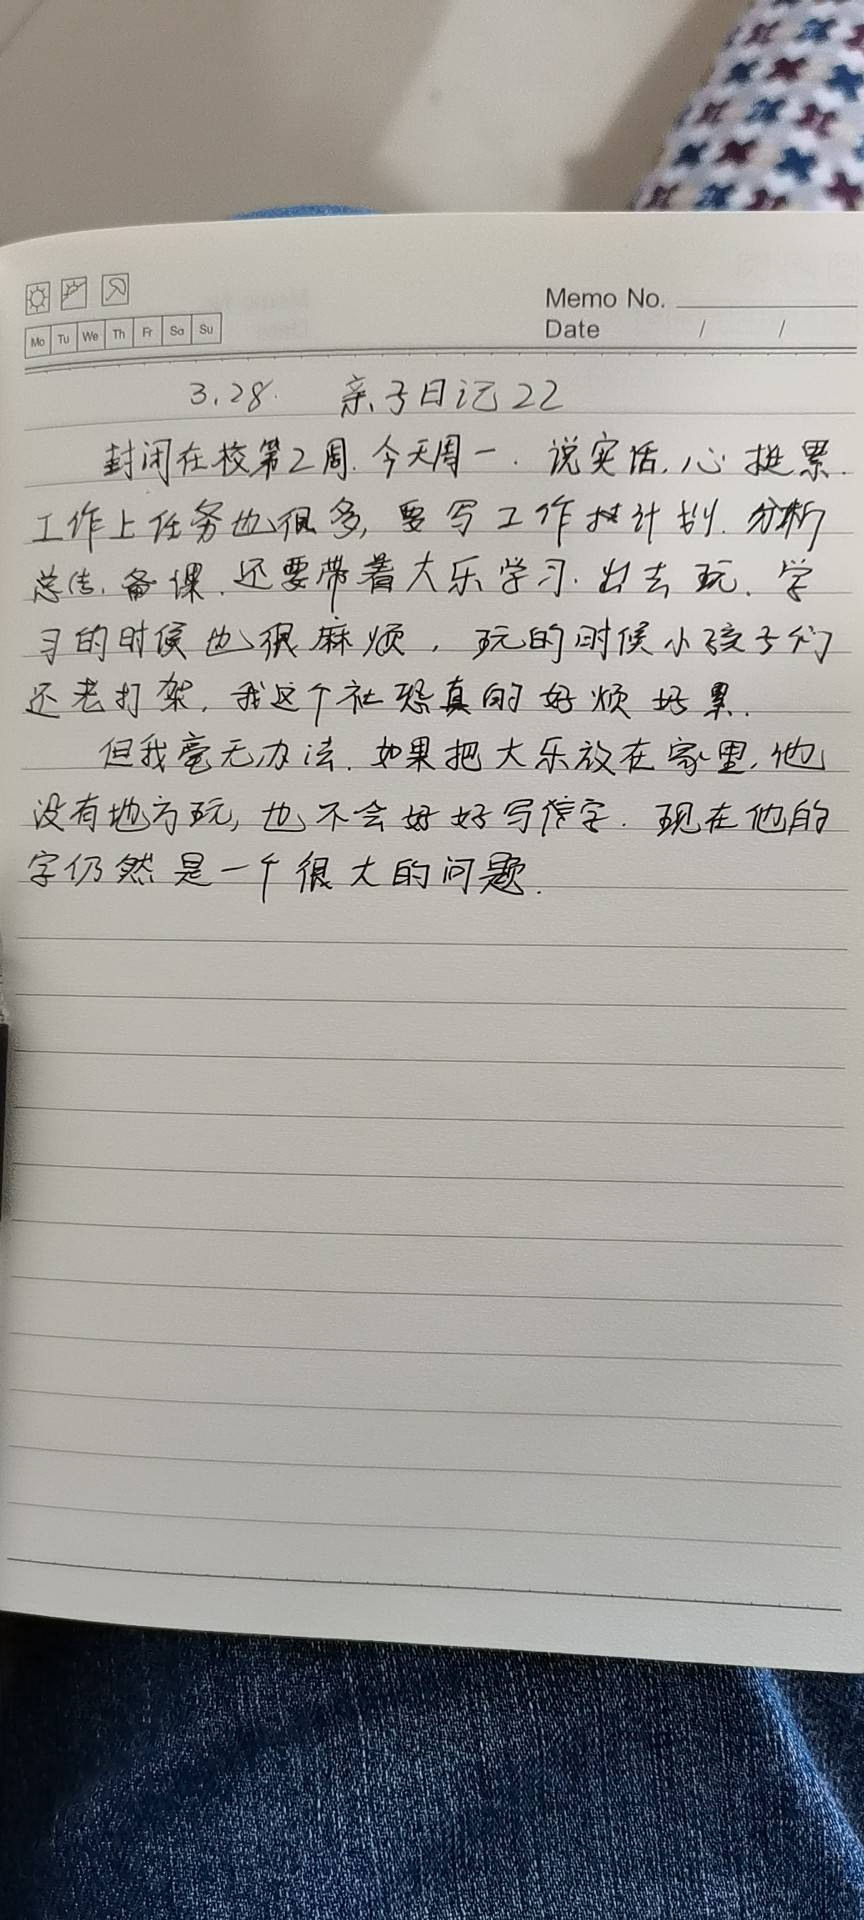 Memo No.
Mo Tu We Th Fr Sa Su
Date / /
3.28. 亲子日记22
封闭在校第2周.今天周一.说实话,心挺累.
工作上任务也很多,要写工作计划.分析
总结.备课.还要带着大乐学习.出去玩.学
习的时候也很麻烦,玩的时候小孩子们
还老打架,我这个社恐真的好烦好累.
但我毫无办法.如果把大乐放在家里,他
没有地方玩,也不会好好写字.现在他的
字仍然是一个很大的问题.